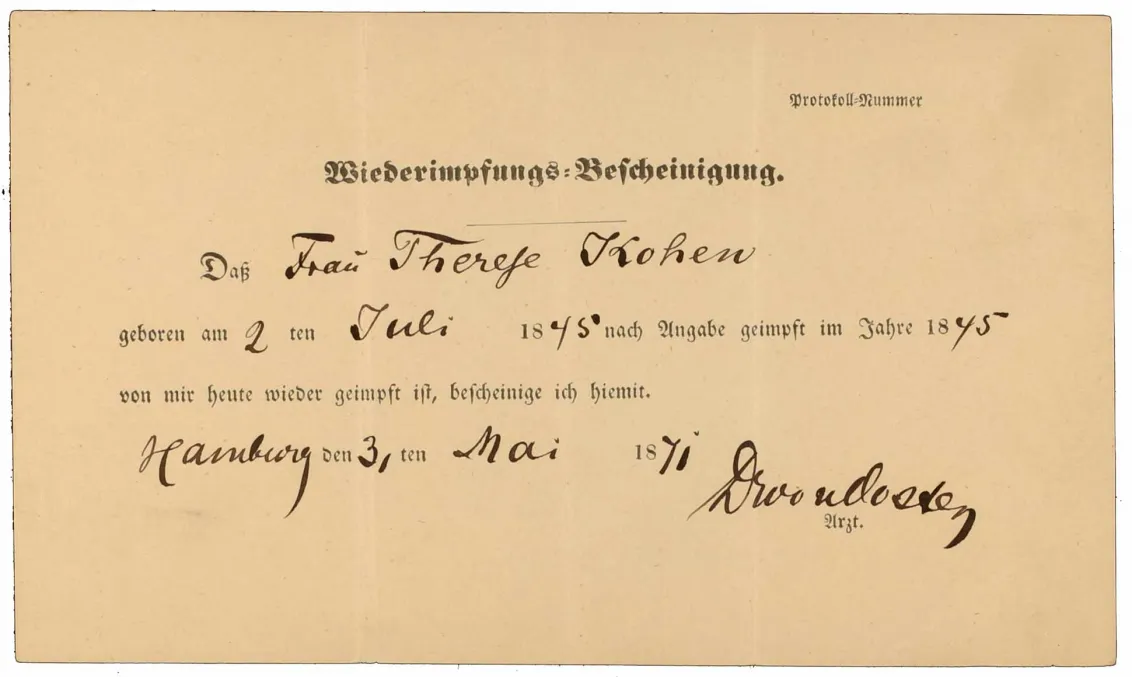 Protokoll-Nummer
Wiederimpfungs-Bescheinigung.
Daß Frau Therese Kohen
geboren am 2 ten Juli 1845 nach Angabe geimpft im Jahre 1845
von mir heute wieder geimpft ist, bescheinige ich hiemit.
Hamburg den 3, ten Mai 1871
Arzt.